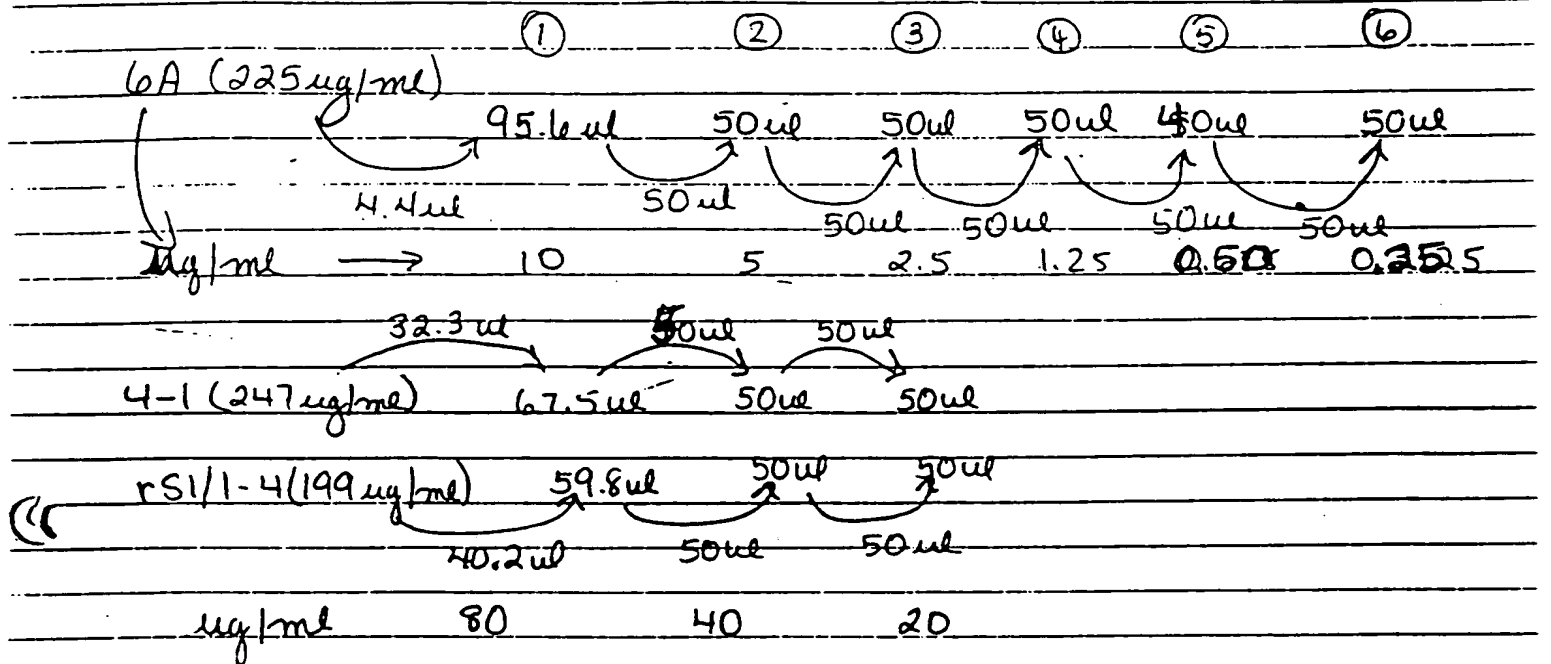 ① ② ③ ④ ⑤ ⑥
6A (225ug/ml)
95.6ul 50ul 50ul 50ul 50ul 50ul
4.4ul 50ul 50ul 50ul 50ul 50ul
ug/ml → 10 5 2.5 1.25
32.3ul 50ul 50ul
4-1 (247ug/ml) 67.5ul 50ul 50ul
rS1/1-4(199ug/ml) 59.8ul 50ul 50ul
40.2ul 50ul 50ul
ug/ml 80 40 20